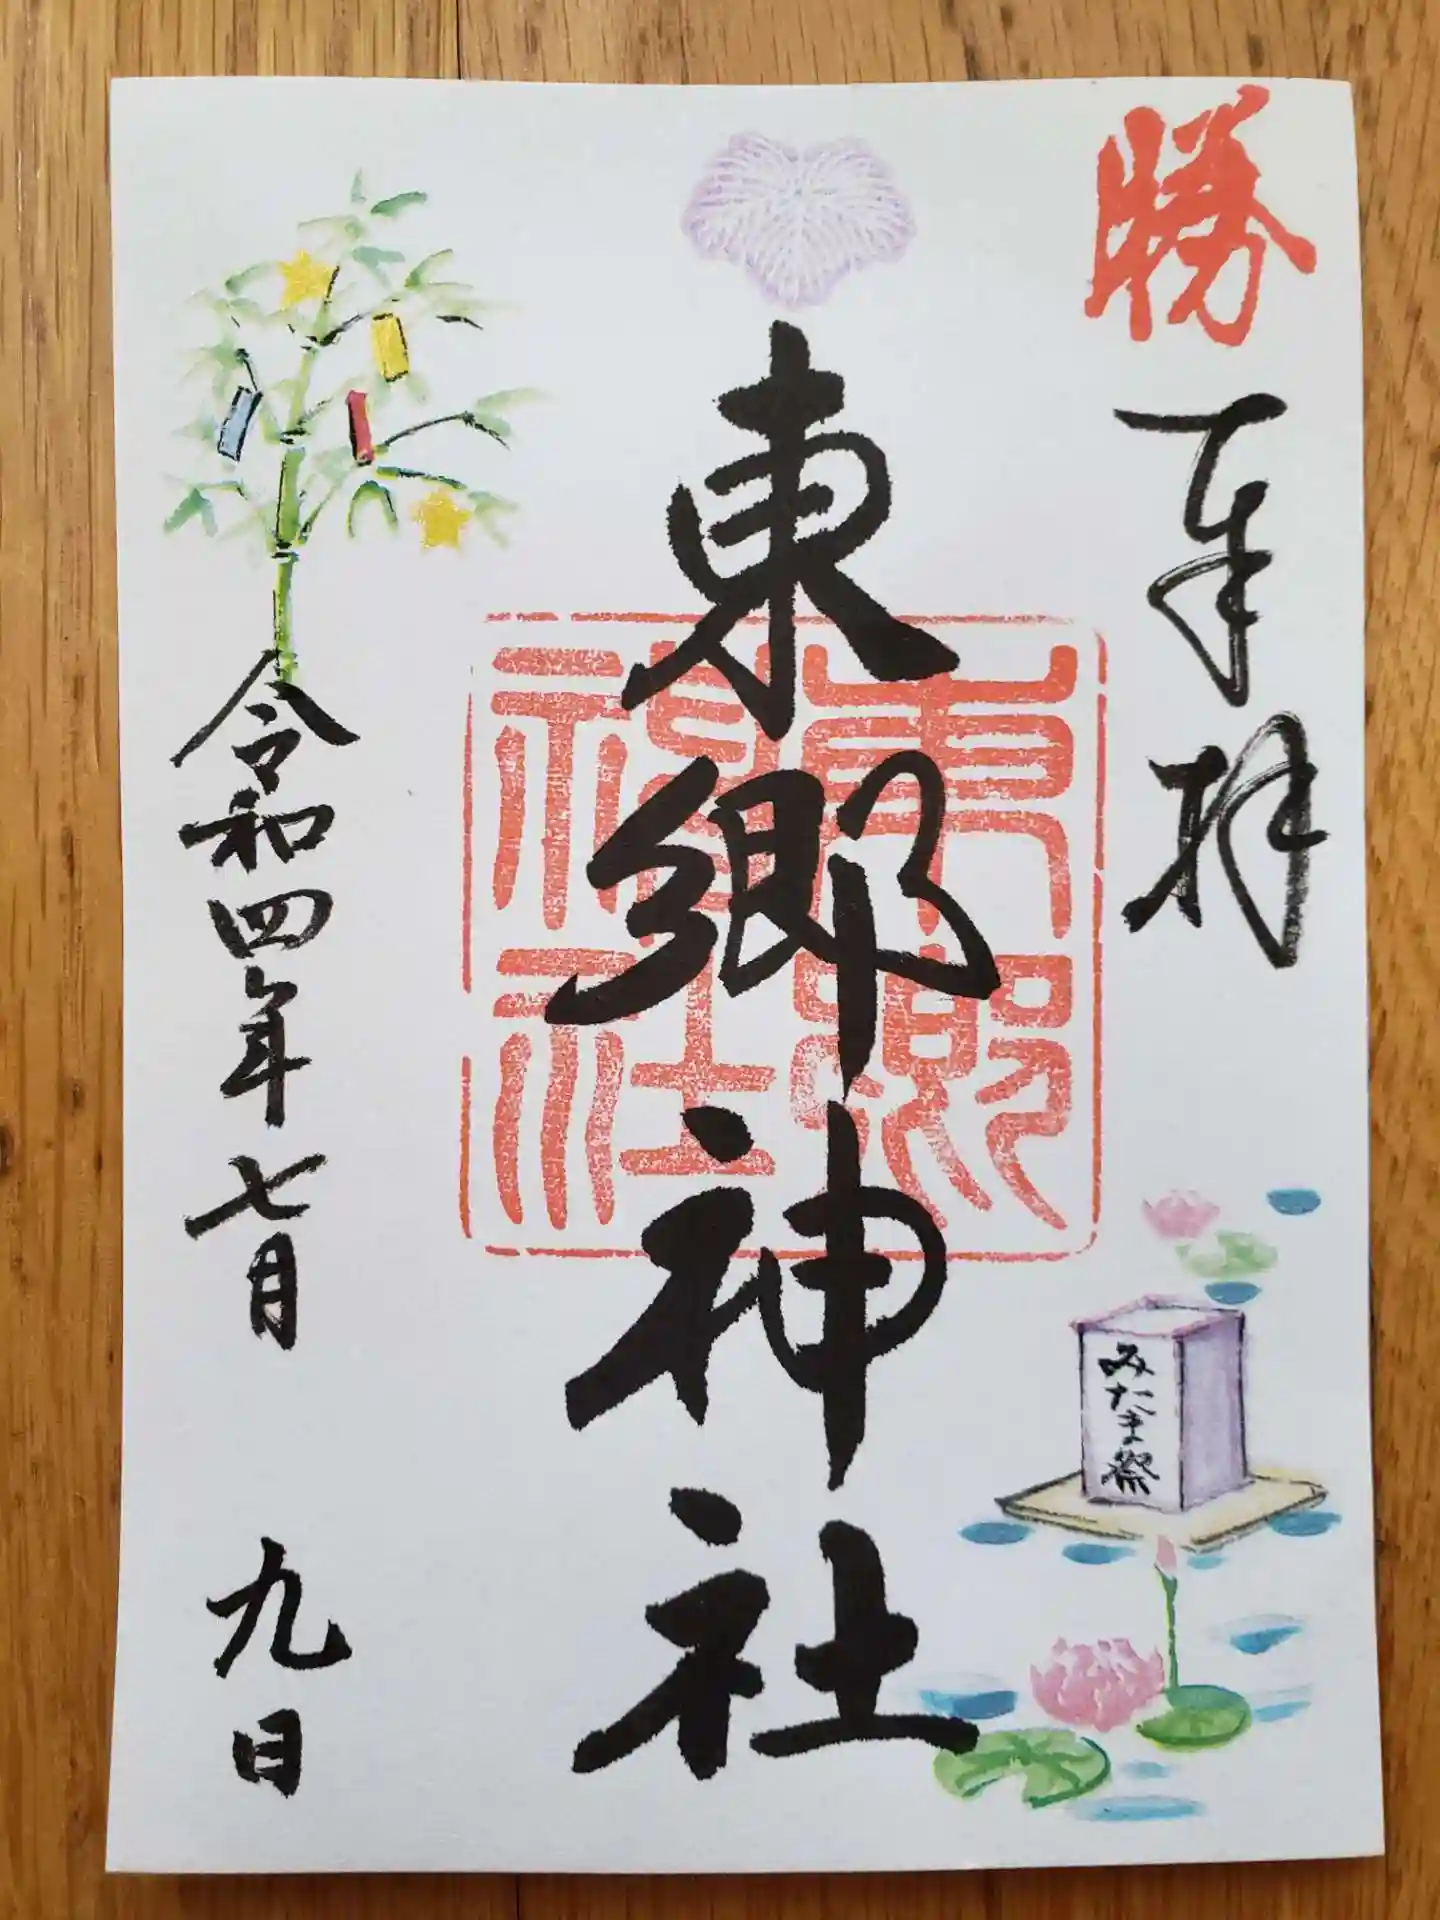 勝
奉拝
東郷神社
東郷神社
みたま祭
令和四年七月九日